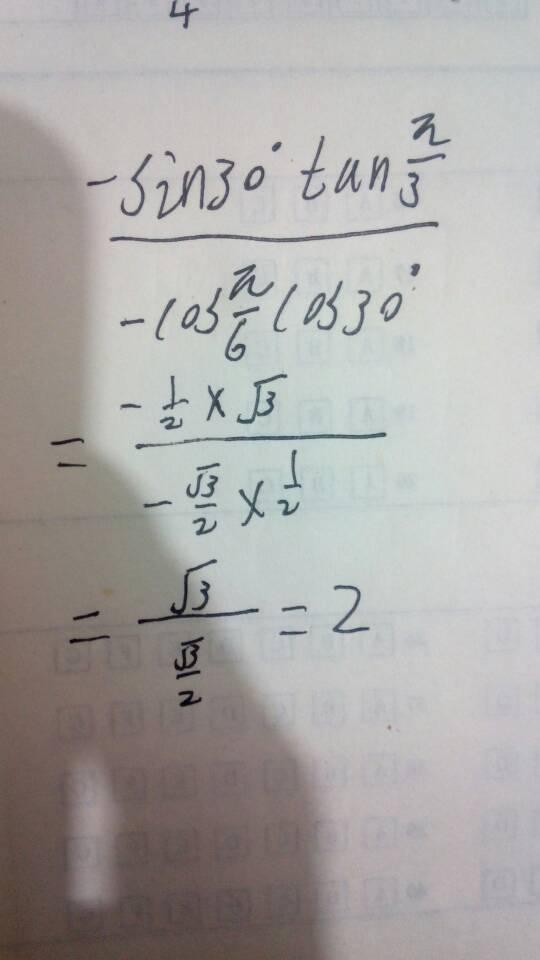 4
-sin30° tan π/3
-cos π/6 cos30°
= -1/2 × √3
-√3/2 × 1/2
= √3 / (√3/2) = 2